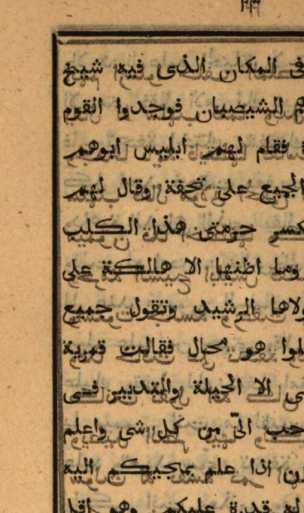 فى المكان الذى فيه شيخ
الشيصبان فوجدوا القوم
فقام لهم ابليس ابوهم
الجميع على تحفة وقال لهم
كسر حرمتى هذا الكلب
وما اظنها الا هالكة على
ولاها الرشيد وتقول جميع
هو محال فقالت قمرية
الا الحيلة والتدبير فهى
احب الىّ من كل شى واعلم
اذا علم بمجيكم اليه
قدرة عليكم وهو اقد